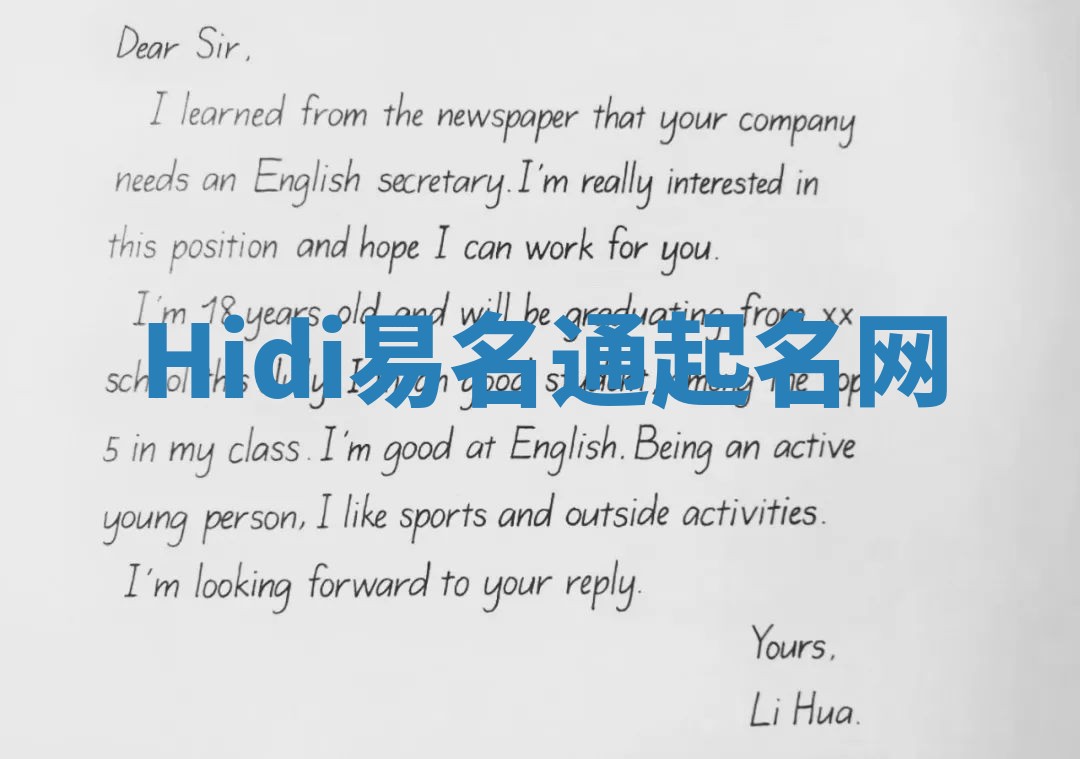 Dear Sir,
I learned from the newspaper that your company
needs an English secretary. I'm really interested in
this position and hope I can work for you.
I'm 18 years old and will be graduating from xx
Hidi易名通起名网
school this July. I good student, among the top
5 in my class. I'm good at English. Being an active
young person, I like sports and outside activities.
I'm looking forward to your reply.
Yours,
Li Hua.